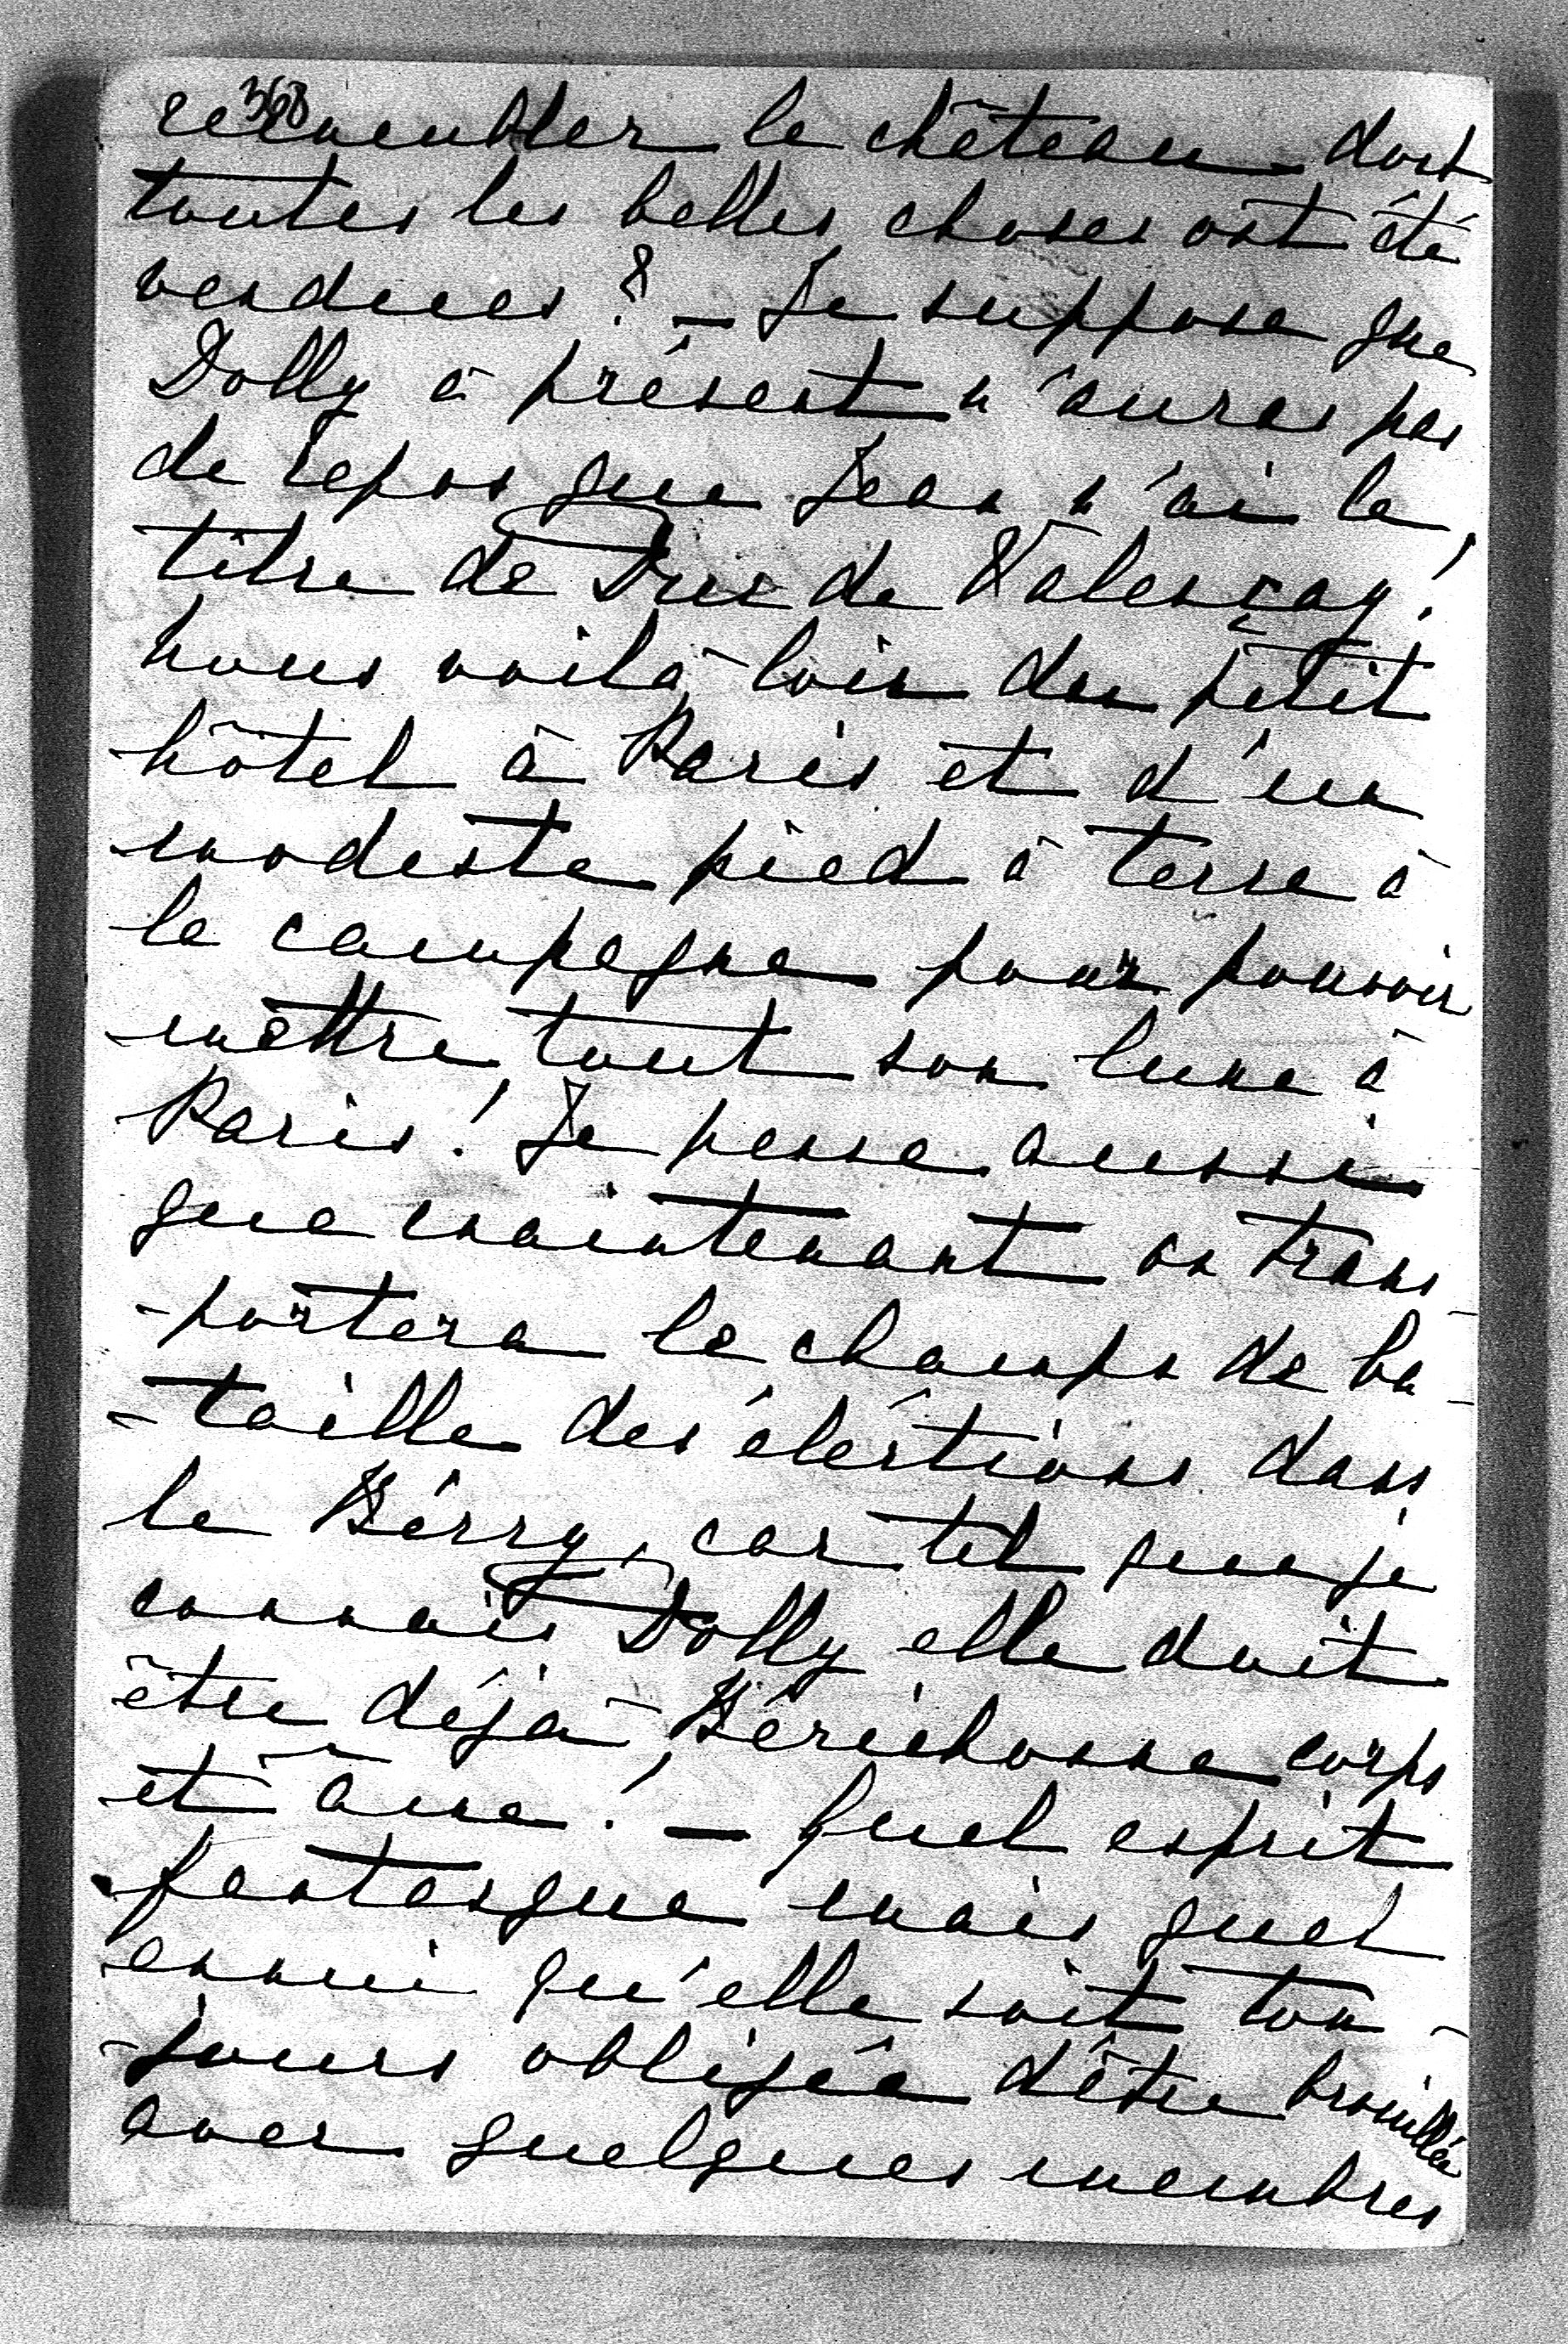 368
remeubler le château dont
toutes les belles choses ont été
vendues? — Je suppose que
Dolly à présent n'auras pas
de repos que Jean n'ai le
titre de Duc de Valençay!
nous voilà loin du petit
hôtel à Paris et d'un
modeste pied à terre à
la campagne pour pouvoir
mettre tout son luxe à
Paris! Je pense aussi
que maintenant on trans-
-portera le champs de ba-
-taille des éléctions dans
le Bérry, car tel que je
connais Dolly elle doit
être déjà Bérichonne corps
et âme! — Quel esprit
fantasque mais quel
ennui qu'elle soit tou-
-jours obligée d'être brouillée
avec quelques membres